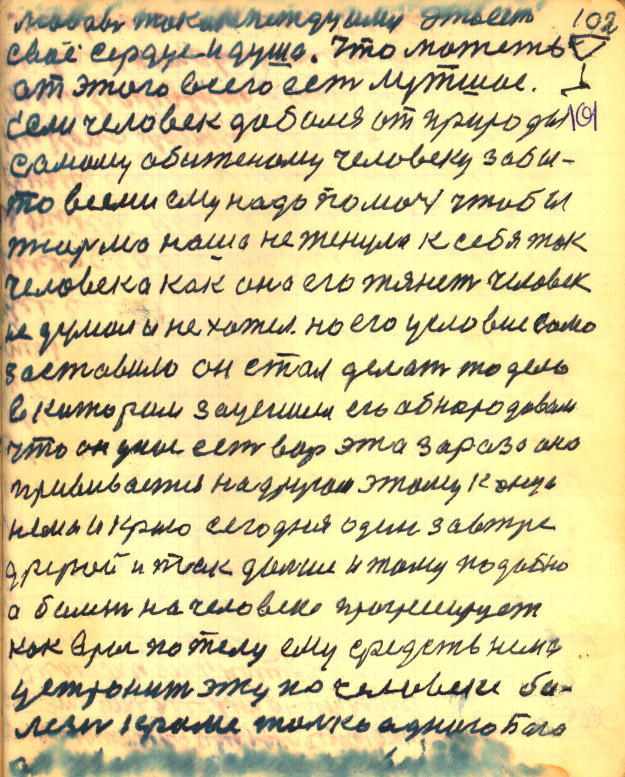 102
своё сердце и душа. Что может
от этого всего ест лутшое.
101
Если человек добился от природы
самому обиженому человеку забы-
то всеми ему надо помоч чтобы
тюрма наша не тенула к себя так
человека как она его тянет человек
не думал и не хотел. но его условие само
заставило он стал делат то дело
в котором зацепили его обнародовали
что он уже ест вор эта зараза она
прививается на другом этому конца
нема и краю сегодня один завтра
другой и так далше и тому подобно
а болезн на человеке прогресирует
как по телу ему средств нема
устронит эту на человеке бо-
лезн кроме толко одного Бога